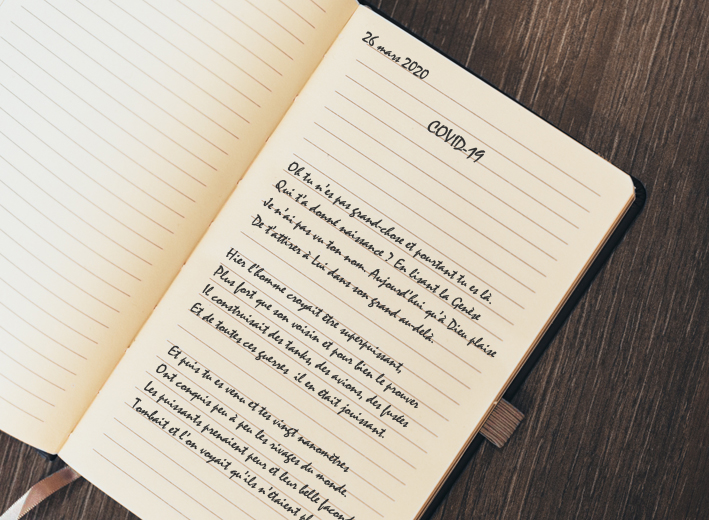 26 mars 2020
COVID-19
Oh tu n'es pas grand-chose et pourtant tu es là.
Qui t'a donné naissance ? En lisant la Genèse
Je n'ai pas vu ton nom. Aujourd'hui qu'à Dieu plaise
De t'attirer à Lui dans son grand au-delà.
Hier l'homme croyait être superpuissant,
Plus fort que son voisin et pour bien le prouver
Il construisait des tanks, des avions, des fusées
Et de toutes ces guerres il en était jouissant.
Et puis tu es venu et tes vingt nanomètres
Ont conquis peu à peu les rivages du monde,
Les puissants prenaient peur et leur belle facond
Tombait et l'on voyait qu'ils n'étaient pl